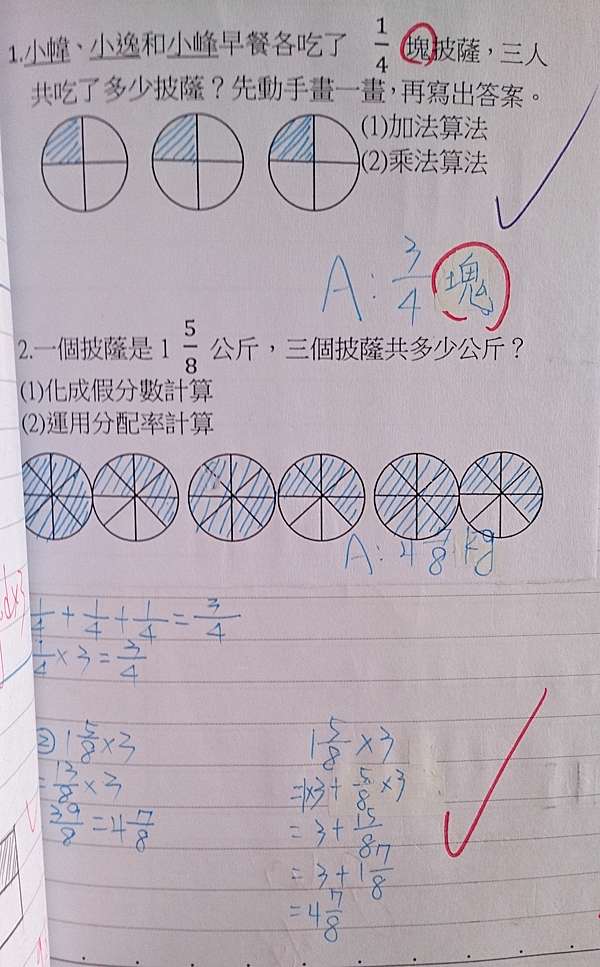 1.小幃、小逸和小峰早餐各吃了 1/4 塊披薩，三人
共吃了多少披薩？先動手畫一畫，再寫出答案。
(1)加法算法
(2)乘法算法
A: 3/4 塊
2.一個披薩是 1 5/8 公斤，三個披薩共多少公斤？
(1)化成假分數計算
(2)運用分配率計算
A: 4 7/8 kg
1/4 + 1/4 + 1/4 = 3/4
1/4 × 3 = 3/4
② 1 5/8 × 3
= 13/8 × 3
39/8 = 4 7/8
1 5/8 × 3
= 1×3 + 5/8 × 3
= 3 + 15/8
= 3 + 1 7/8
= 4 7/8